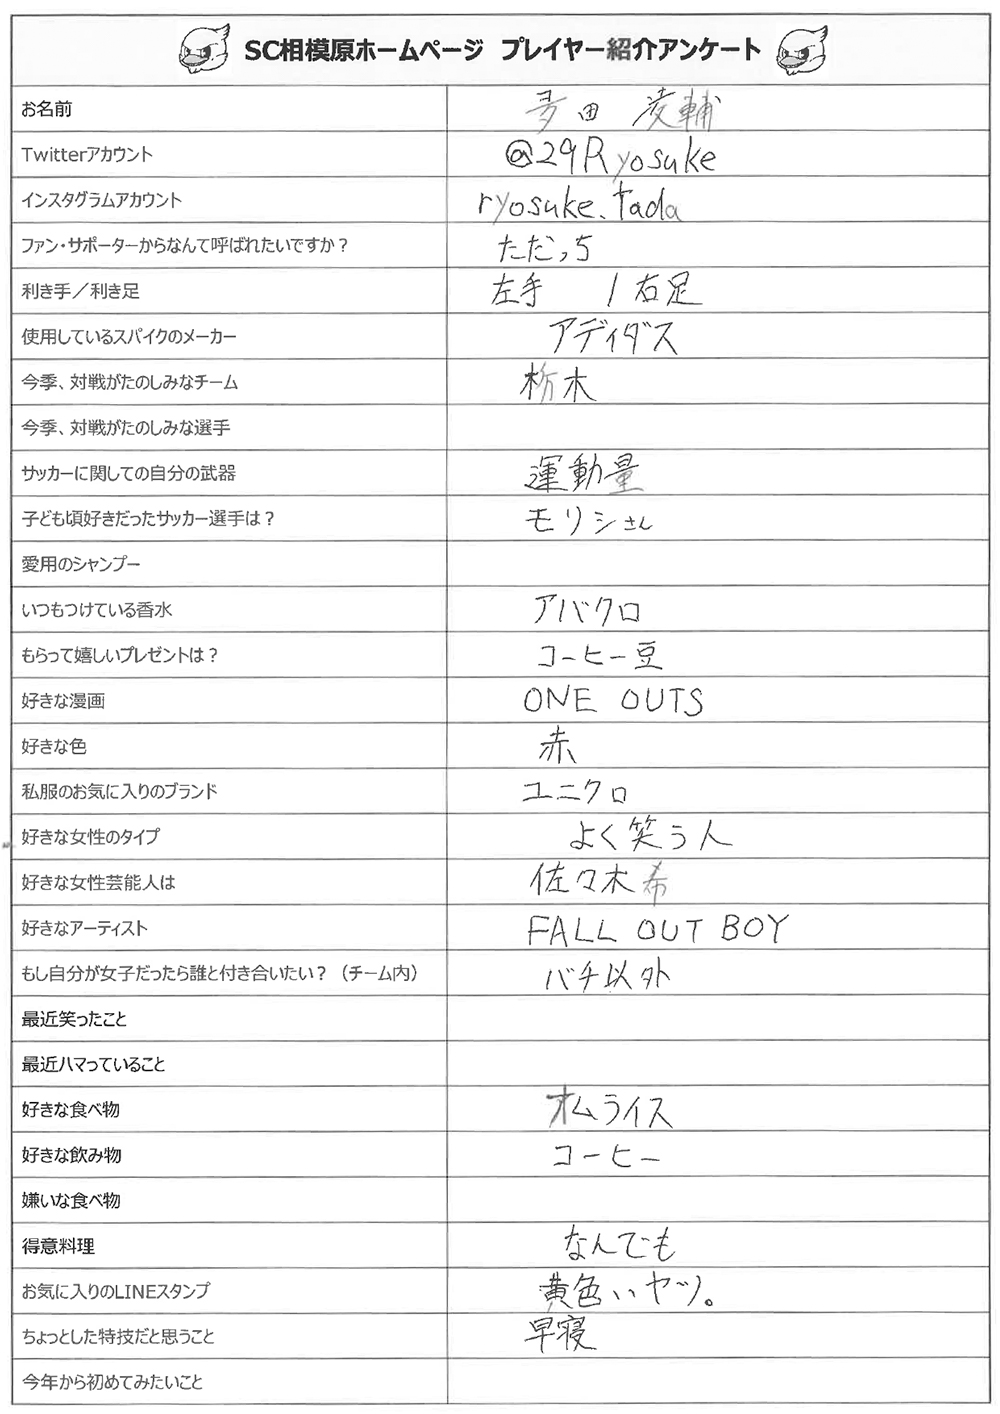 SC相模原ホームページ プレイヤー紹介アンケート
お名前 多田 凌輔
Twitterアカウント @29Ryosuke
インスタグラムアカウント ryosuke.tada
ファン・サポーターからなんて呼ばれたいですか？ ただっち
利き手／利き足 左手 / 右足
使用しているスパイクのメーカー アディダス
今季、対戦がたのしみなチーム 栃木
今季、対戦がたのしみな選手
サッカーに関しての自分の武器 運動量
子ども頃好きだったサッカー選手は？ モリシさん
愛用のシャンプー
いつもつけている香水 アバクロ
もらって嬉しいプレゼントは？ コーヒー豆
好きな漫画 ONE OUTS
好きな色 赤
私服のお気に入りのブランド ユニクロ
好きな女性のタイプ よく笑う人
好きな女性芸能人は 佐々木希
好きなアーティスト FALL OUT BOY
もし自分が女子だったら誰と付き合いたい？（チーム内） バチ以外
最近笑ったこと
最近ハマっていること
好きな食べ物 オムライス
好きな飲み物 コーヒー
嫌いな食べ物
得意料理 なんでも
お気に入りのLINEスタンプ 黄色いヤツ。
ちょっとした特技だと思うこと 早寝
今年から初めてみたいこと